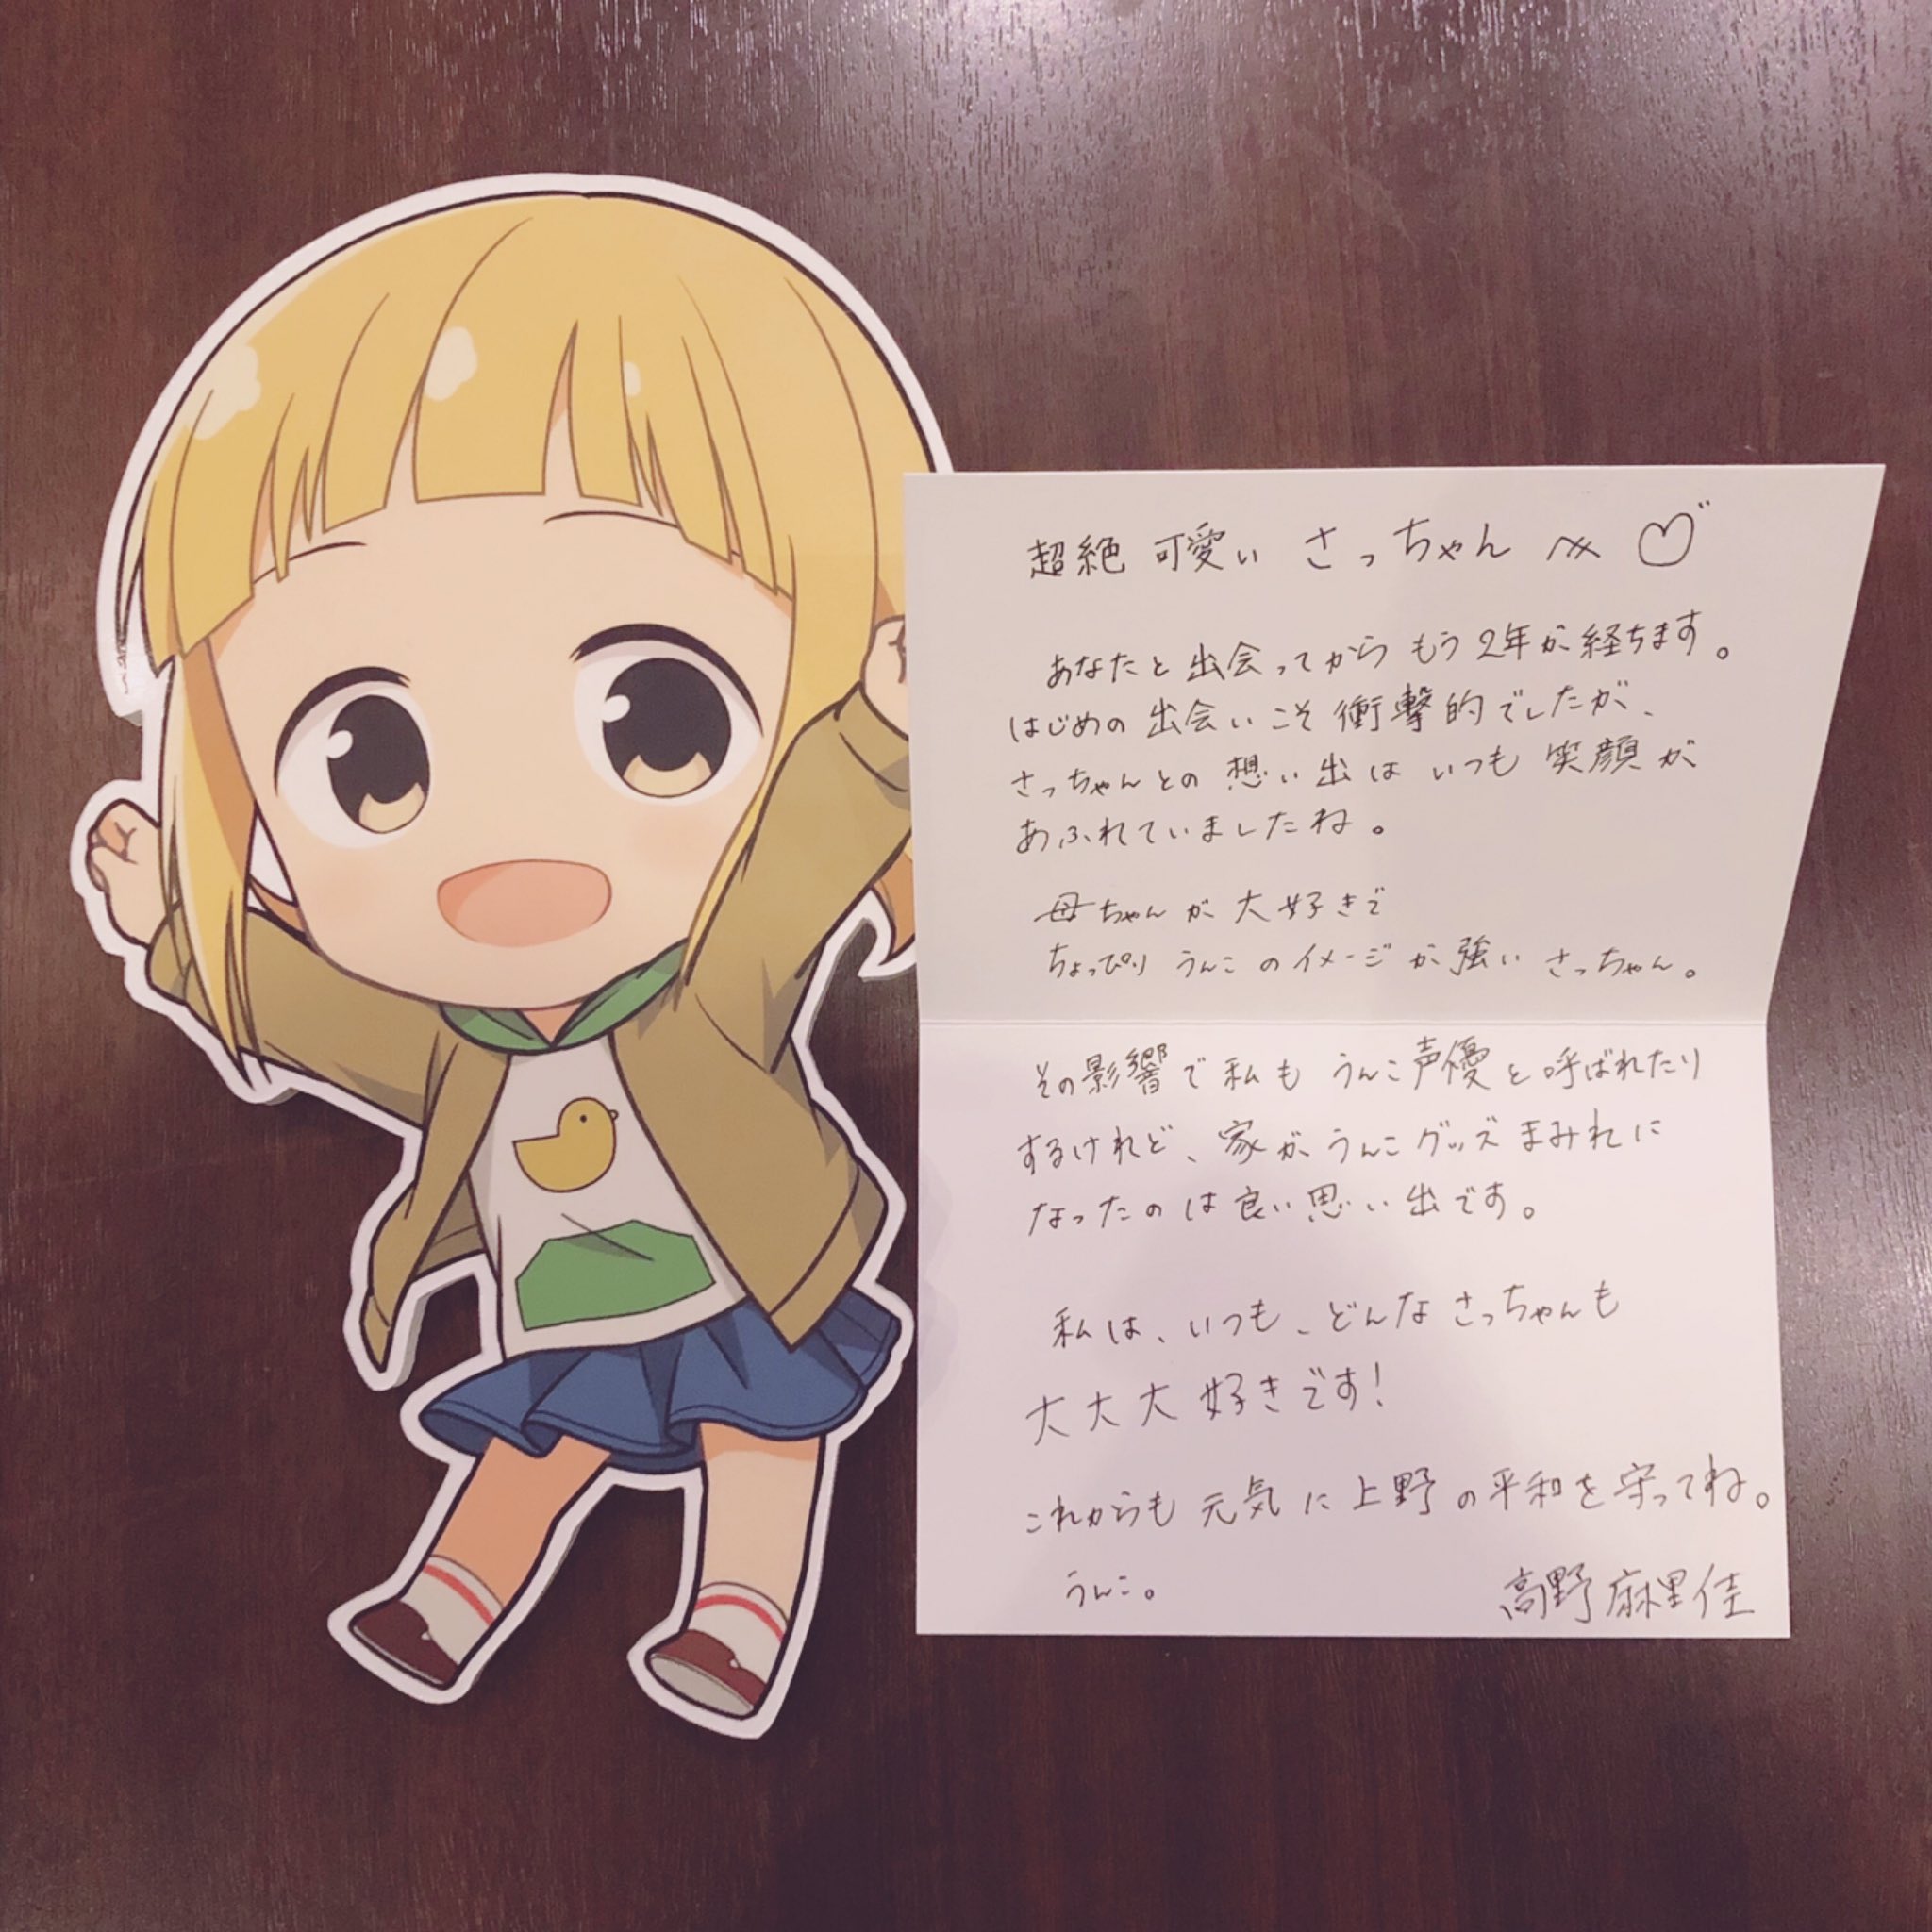 超絶可愛いさっちゃんへ♡
あなたと出会ってからもう2年が経ちます。
はじめの出会いこそ衝撃的でしたが、
さっちゃんとの想い出はいつも笑顔が
あふれていましたね。
母ちゃんが大好きで
ちょっぴりうんこのイメージが強いさっちゃん。
その影響で私もうんこ声優と呼ばれたり
するけれど、家がうんこグッズまみれに
なったのは良い思い出です。
私は、いつも、どんなさっちゃんも
大大大好きです!
これからも元気に上野の平和を守ってね。
うんこ。
高野麻里佳